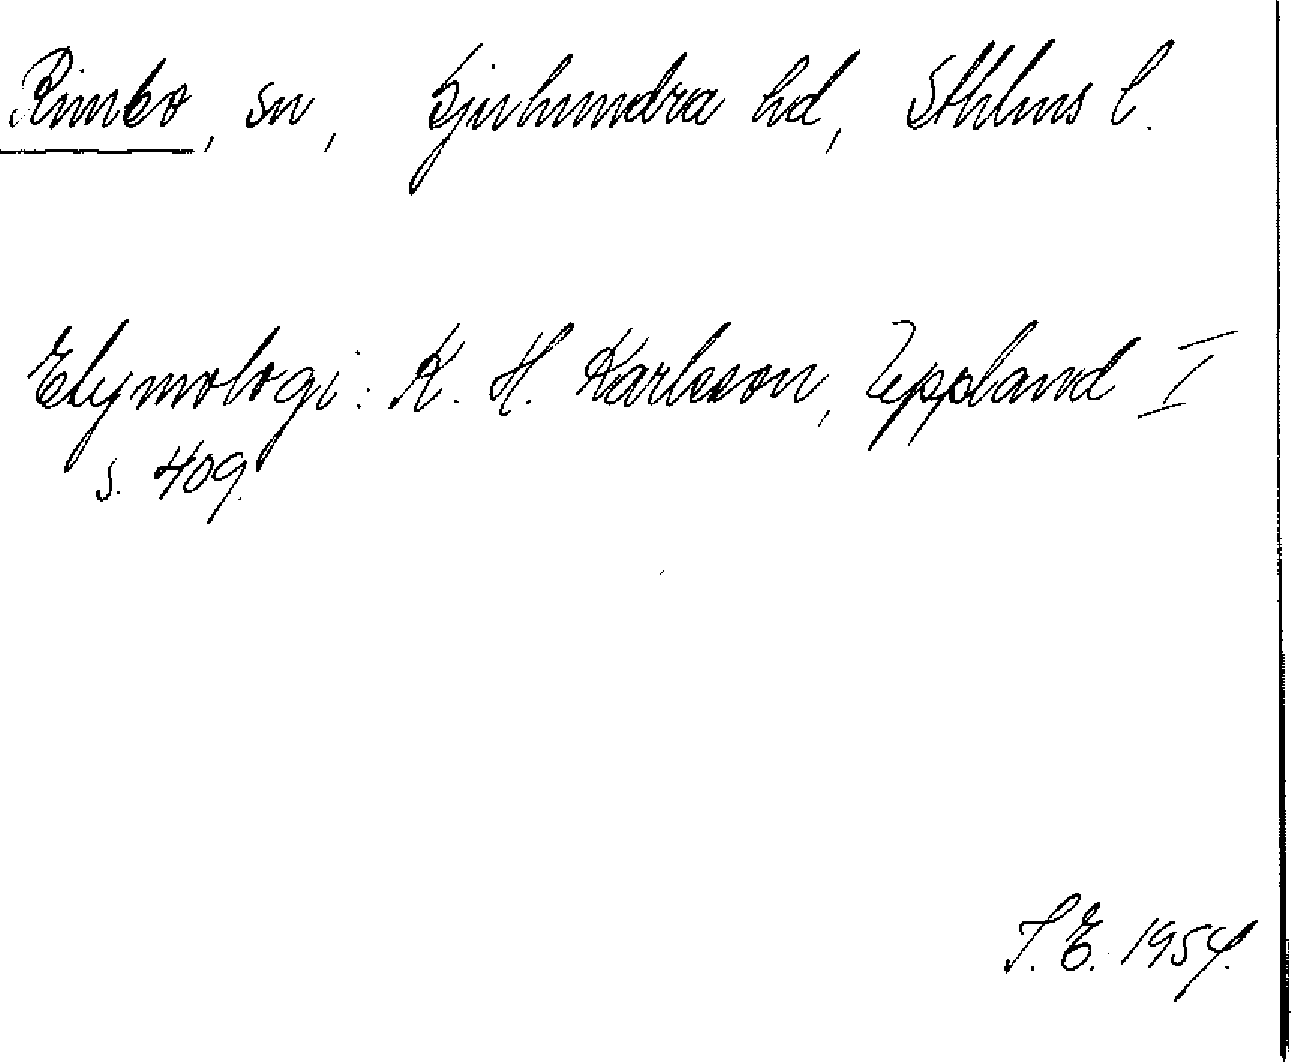 Rimbo, sn, Sjuhundra hd, Sthlms l.
Etymologi: K. H. Karlsson, Uppland I
s. 409.
S. E. 1954.